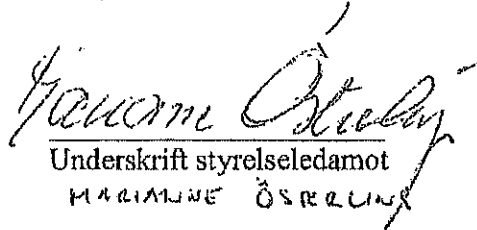 Marianne Österling
Underskrift styrelseledamot
MARIANNE ÖSTERLING